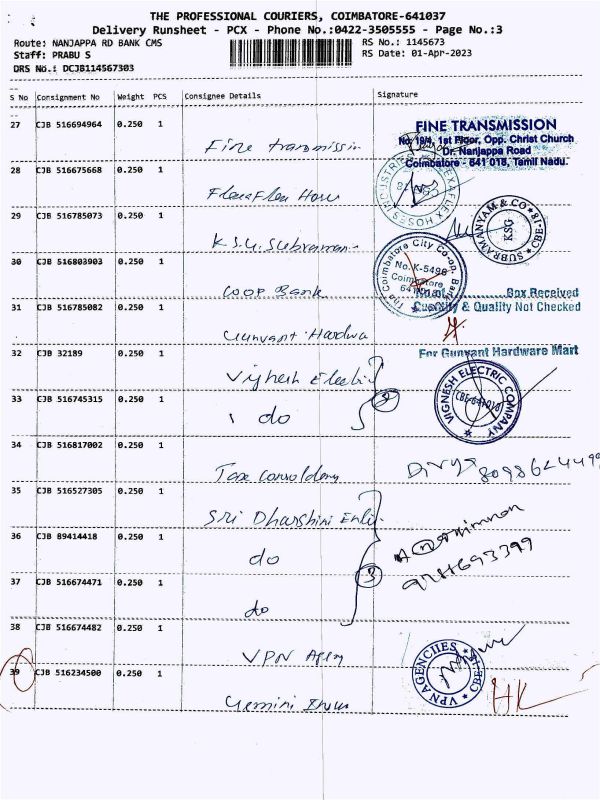 THE PROFESSIONAL COURIERS, COIMBATORE-641037
Delivery Runsheet - PCX - Phone No.:0422-3505555 - Page No.:3
Route: NANJAPPA RD BANK CMS
RS No.: 1145673
Staff: PRABU S
RS Date: 01-Apr-2023
DRS No.: DCJB114567303
S No Consignment No Weight PCS Consignee Details Signature
27 CJB 516694964 0.250 1
Fine transmissin
FINE TRANSMISSION
1st Floor, Opp. Christ Church
Dr. Nanjappa Road
Coimbatore - 641 018, Tamil Nadu.
28 CJB 516675668 0.250 1
FLEX HOSES
29 CJB 516785073 0.250 1
K.S.G. Subraman
SUBRAMANYAM & CO
KSG
CBE-18
30 CJB 516803903 0.250 1
COOP Bank
The Coimbatore City Co-op. Bank
No. K-5496
Coimbatore
31 CJB 516785082 0.250 1
Gunvant Hardwa
Box Received
Quantity & Quality Not Checked
For Gunvant Hardware Mart
32 CJB 32189 0.250 1
Vignesh Electri
33 CJB 516745315 0.250 1
do
2
VIGNESH ELECTRIC COMPANY
CBE-641018
34 CJB 516817002 0.250 1
Divya
35 CJB 516527305 0.250 1
Sri Dharshini
36 CJB 89414418 0.250 1
do
37 CJB 516674471 0.250 1
do
3
38 CJB 516674482 0.250 1
VPN
VPN AGENCIIES
CBE-18
39 CJB 516234500 0.250 1
Gemini
HK